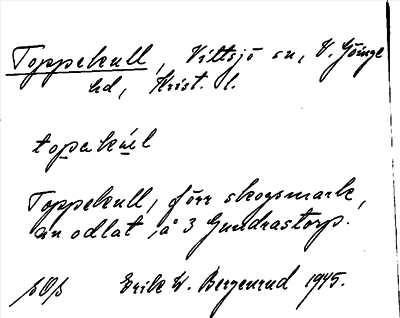 Toppekull, Vittsjö sn, V. Göinge
hd, Krist. l.
topekul
Toppekull, förr skogsmark,
nu odlat, å 3 Gundrastorp.
Erik W. Bergenrud 1945.